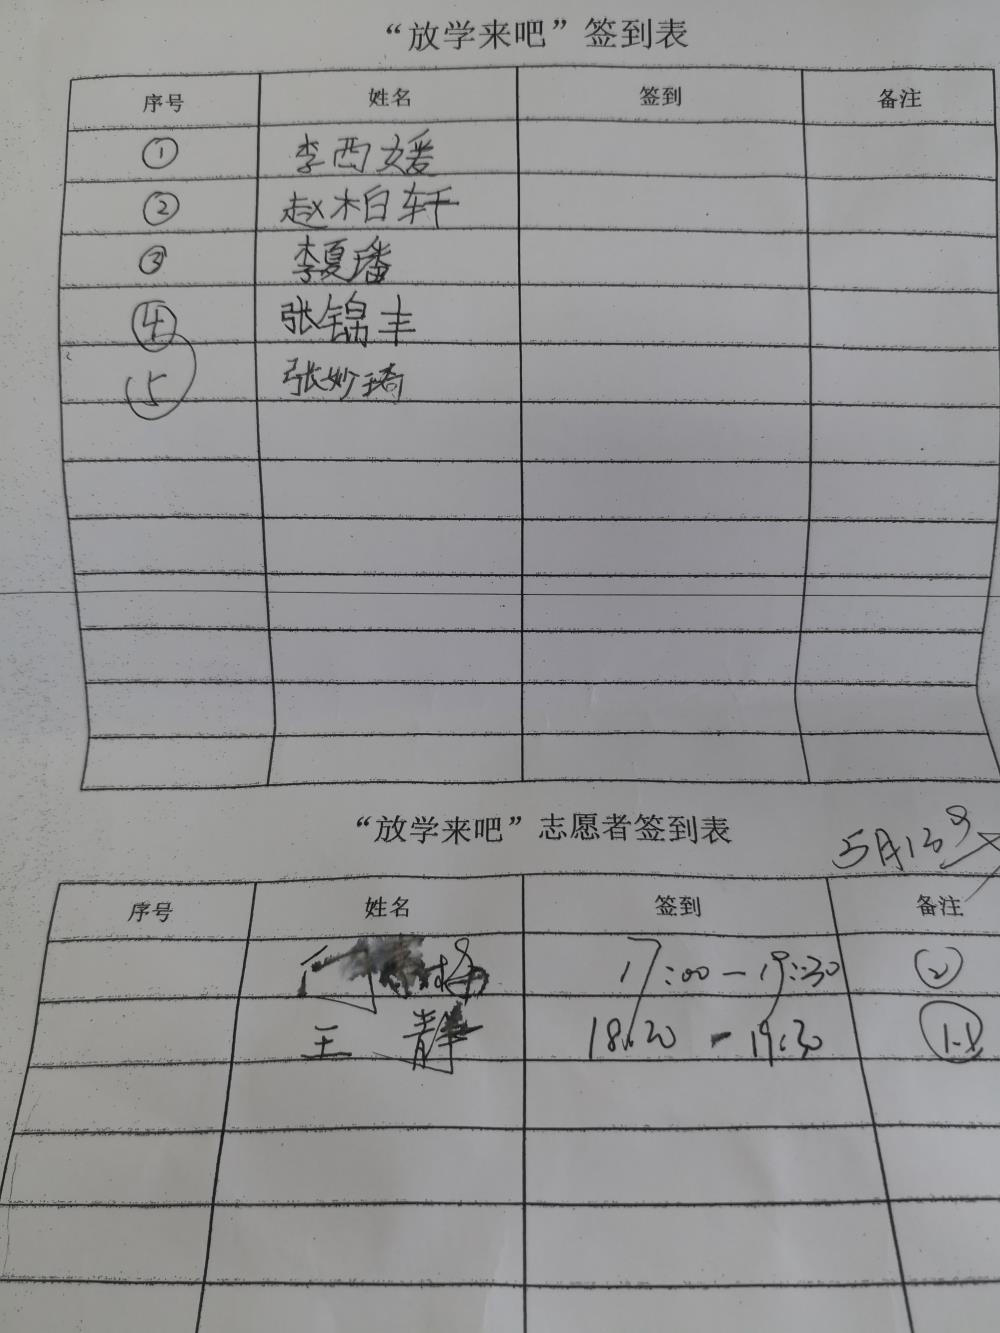 “放学来吧”签到表
序号 姓名 签到 备注
① 李西媛
② 赵柏轩
③ 李夏璠
④ 张锦丰
⑤ 张妙琦
“放学来吧”志愿者签到表
5月13日
序号 姓名 签到 备注
17:00-19:30 ②
王静 18:20-19:30